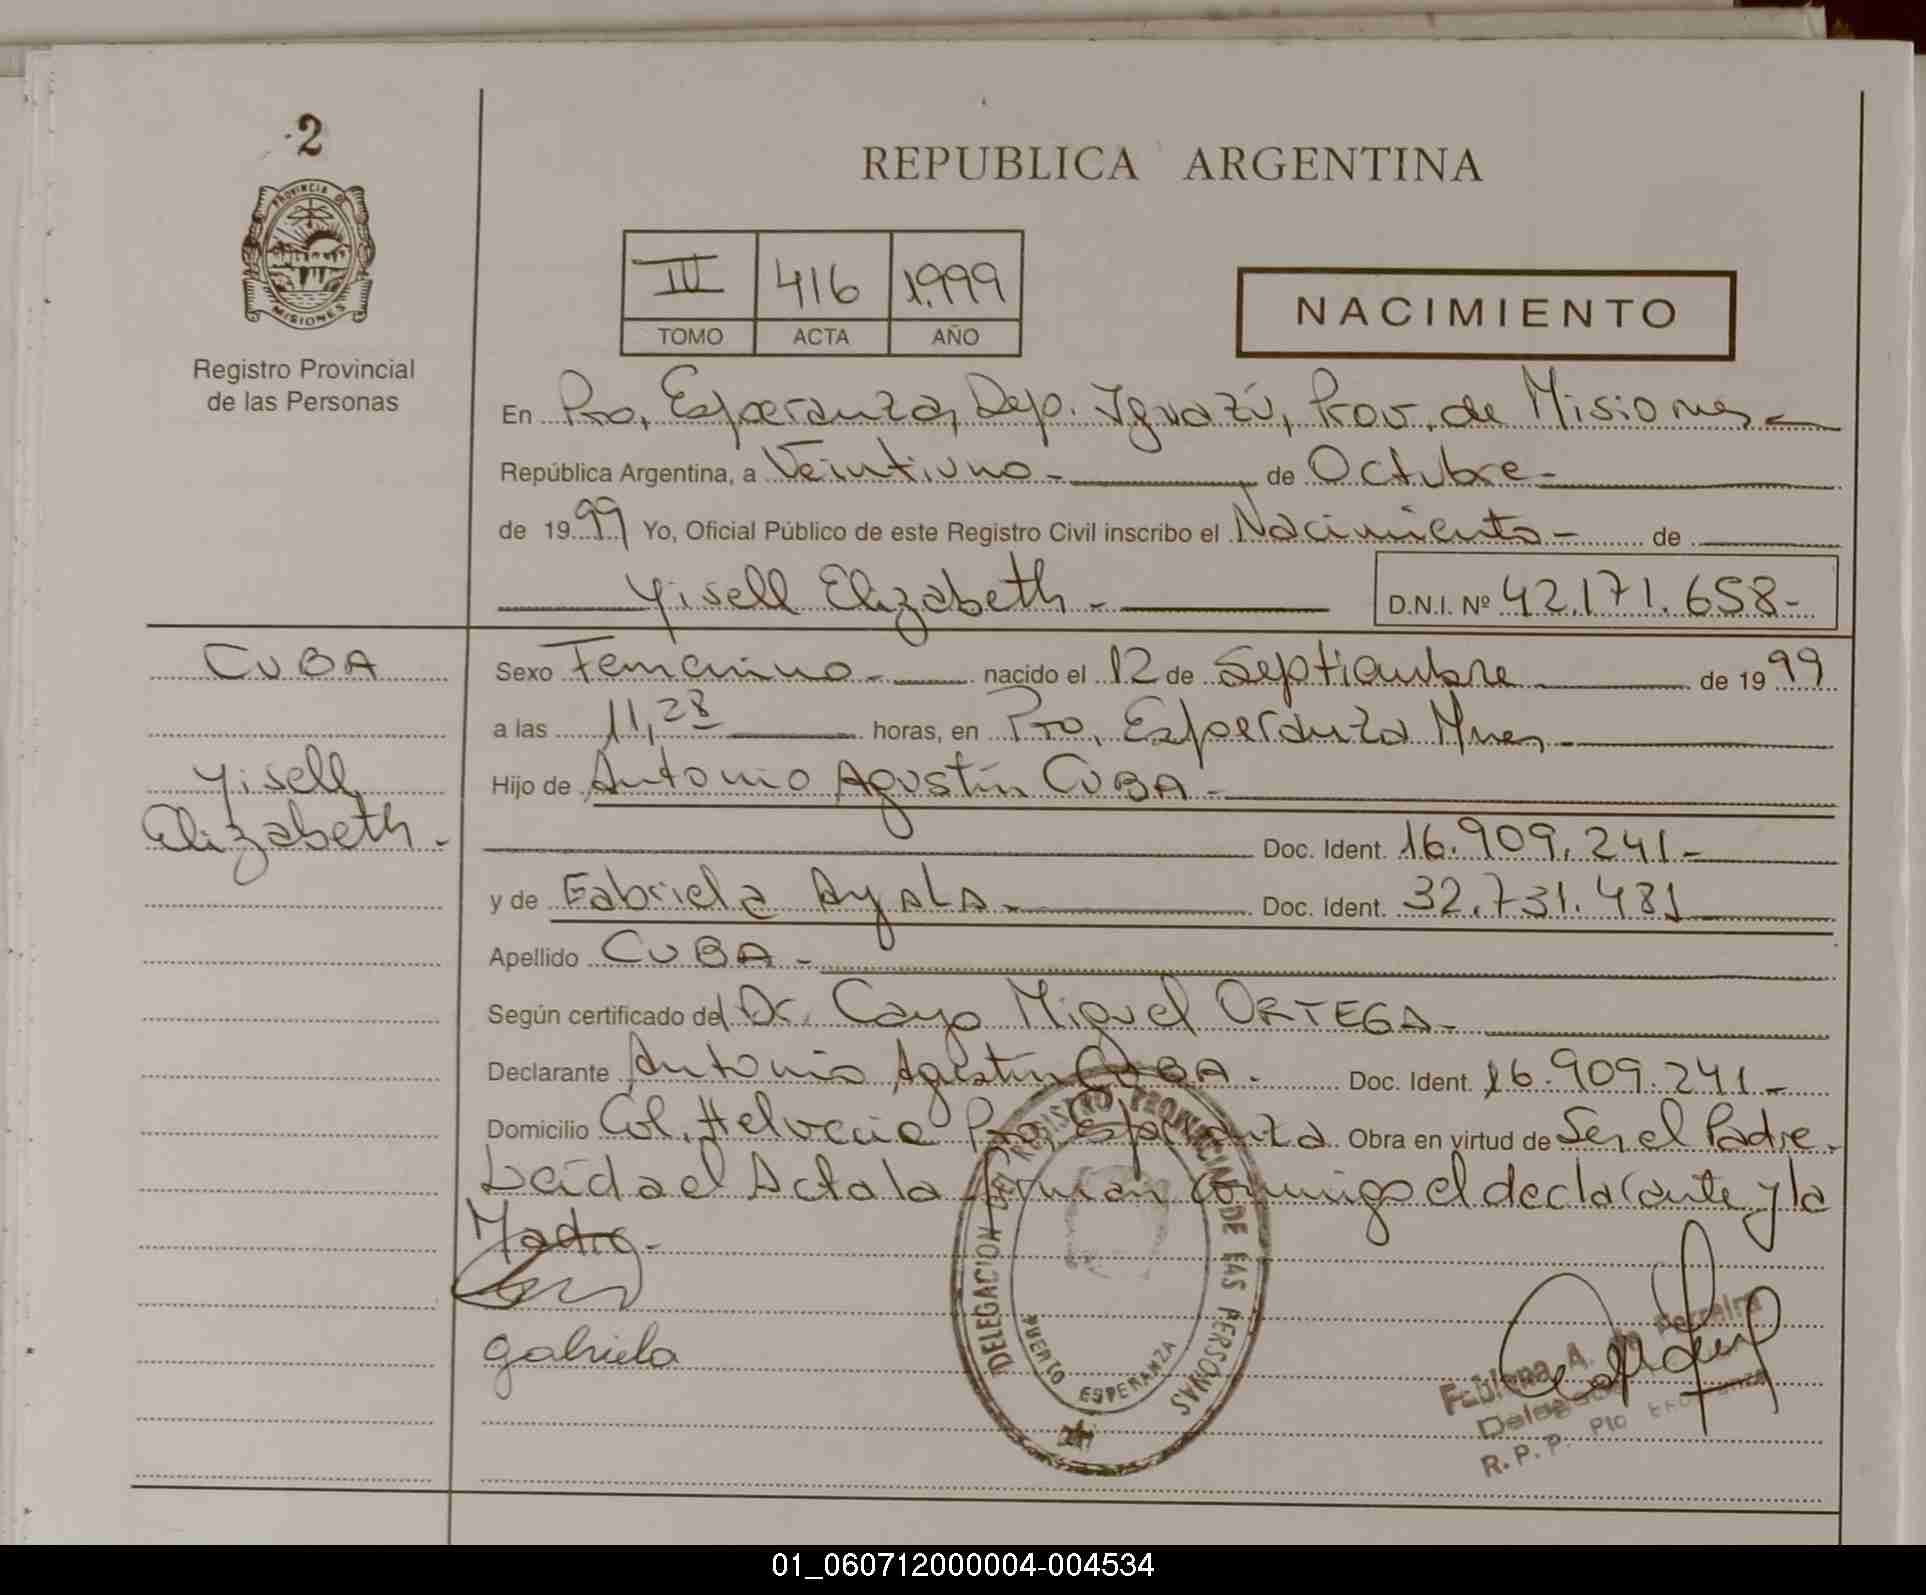 2
PROVINCIA DE
MISIONES
Registro Provincial
de las Personas
REPUBLICA ARGENTINA
III 416 1.999
TOMO ACTA AÑO
NACIMIENTO
En Pto, Esperanza, Dep. Iguazú, Prov. de Misiones
República Argentina, a Veintiuno - de Octubre -
de 1999 Yo, Oficial Público de este Registro Civil inscribo el Nacimiento - de
Yisell Elizabeth - D.N.I. Nº 42.171.658-
CUBA
Yisell
Elizabeth -
Sexo Femenino - nacido el 12 de Septiembre de 1999
a las 11,28 horas, en Pto, Esperanza Mnes -
Hijo de Antonio Agustín CUBA -
Doc. Ident. 16.909.241-
y de Gabriela AyALA - Doc. Ident. 32.731.481
Apellido CUBA -
Según certificado del Dr. Cayo Miguel ORTEGA -
Declarante Antonio Agustín CUBA - Doc. Ident. 16.909.241-
Domicilio Col. Helvecia Pto, Esperanza Obra en virtud de Ser el Padre -
Leída el Acta la firman conmigo el declarante y la
Madre -
gabriela
DELEGACION DEL REGISTRO PROVINCIAL DE LAS PERSONAS
PUERTO ESPERANZA
Fabiana A. Ferreira
R. P. P. Pto
01_060712000004-004534